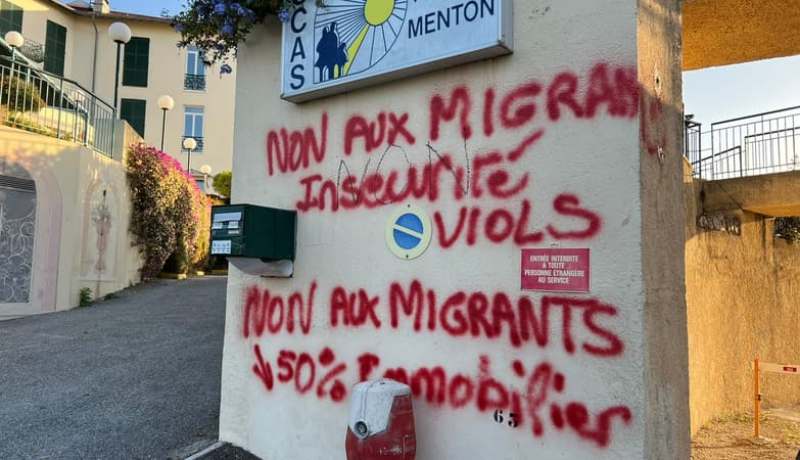 CCAS
MENTON
NON AUX MIGRANTS
NON
Insecurité
VIOLS
ENTRÉE INTERDITE
À TOUTE
PERSONNE ÉTRANGÈRE
AU SERVICE
NON AUX MIGRANTS
↓ 50% Immobilier
65